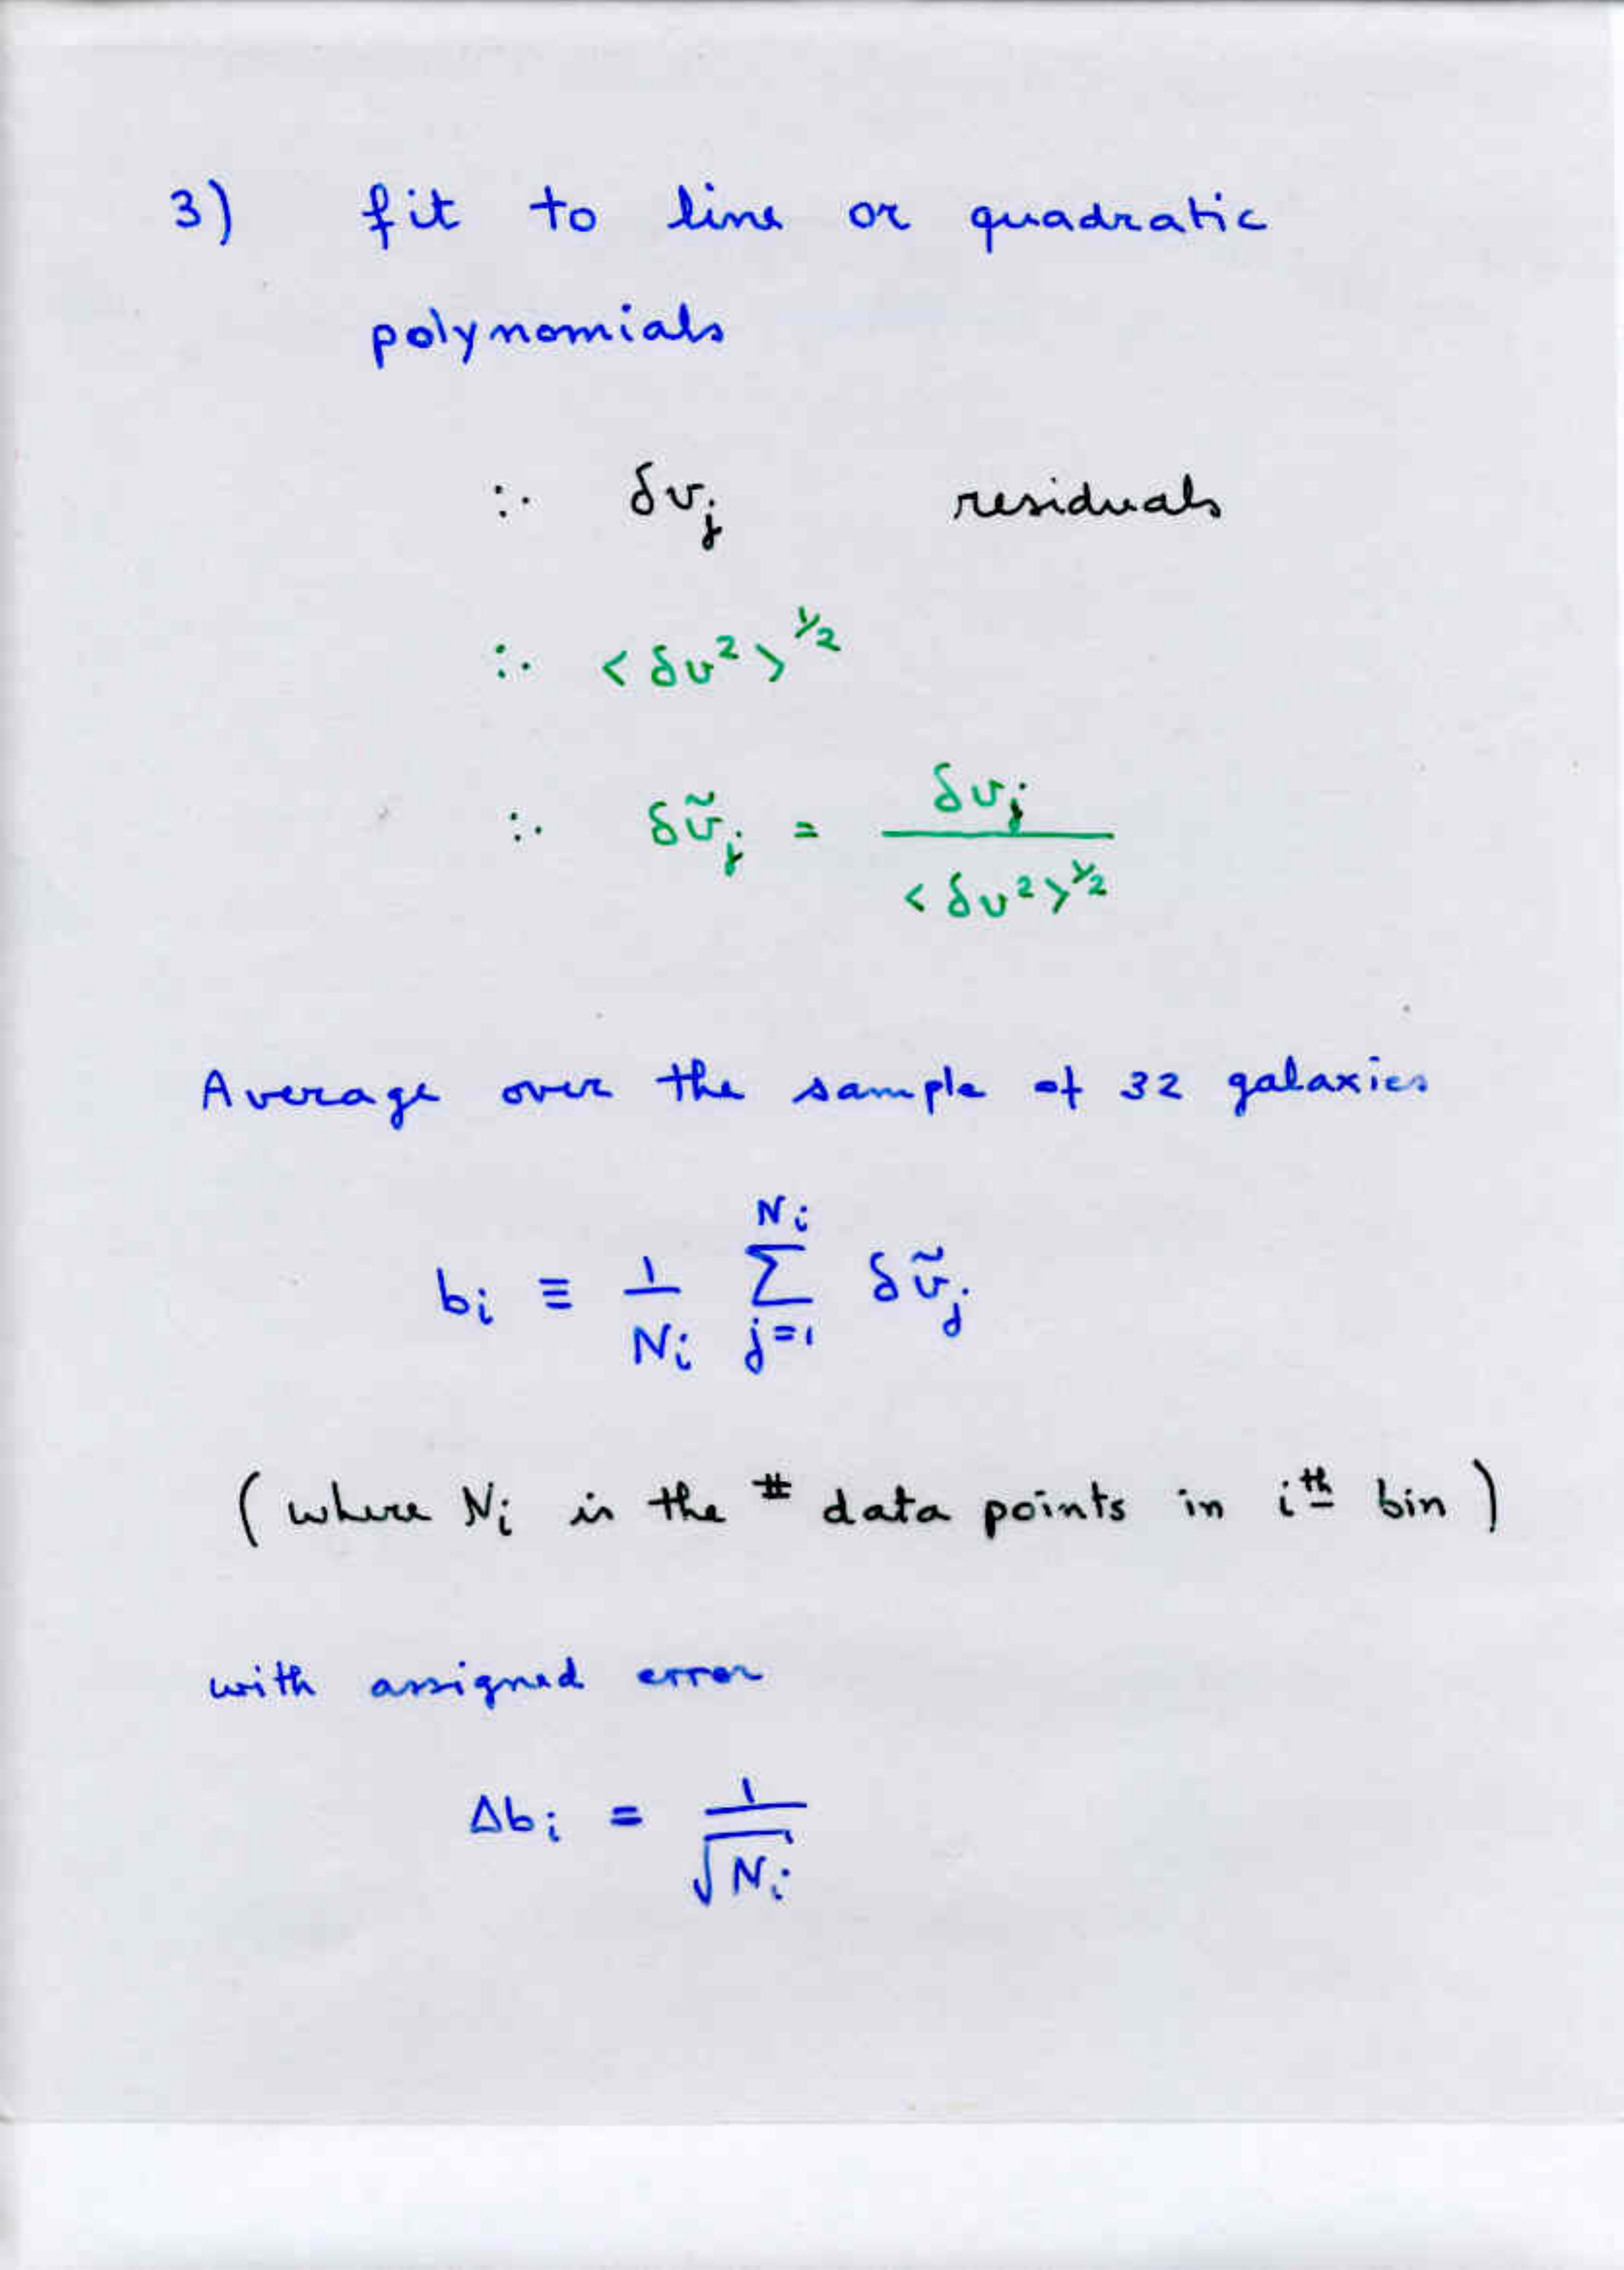 3) fit to line or quadratic
polynomials
∴ δv_j residuals
∴ <δv²>^{1/2}
∴ δṽ_j = δv_j / <δv²>^{1/2}
Average over the sample of 32 galaxies
b_i ≡ 1/N_i Σ_{j=1}^{N_i} δṽ_j
(where N_i is the # data points in i^{th} bin)
with assigned error
Δb_i = 1/√N_i